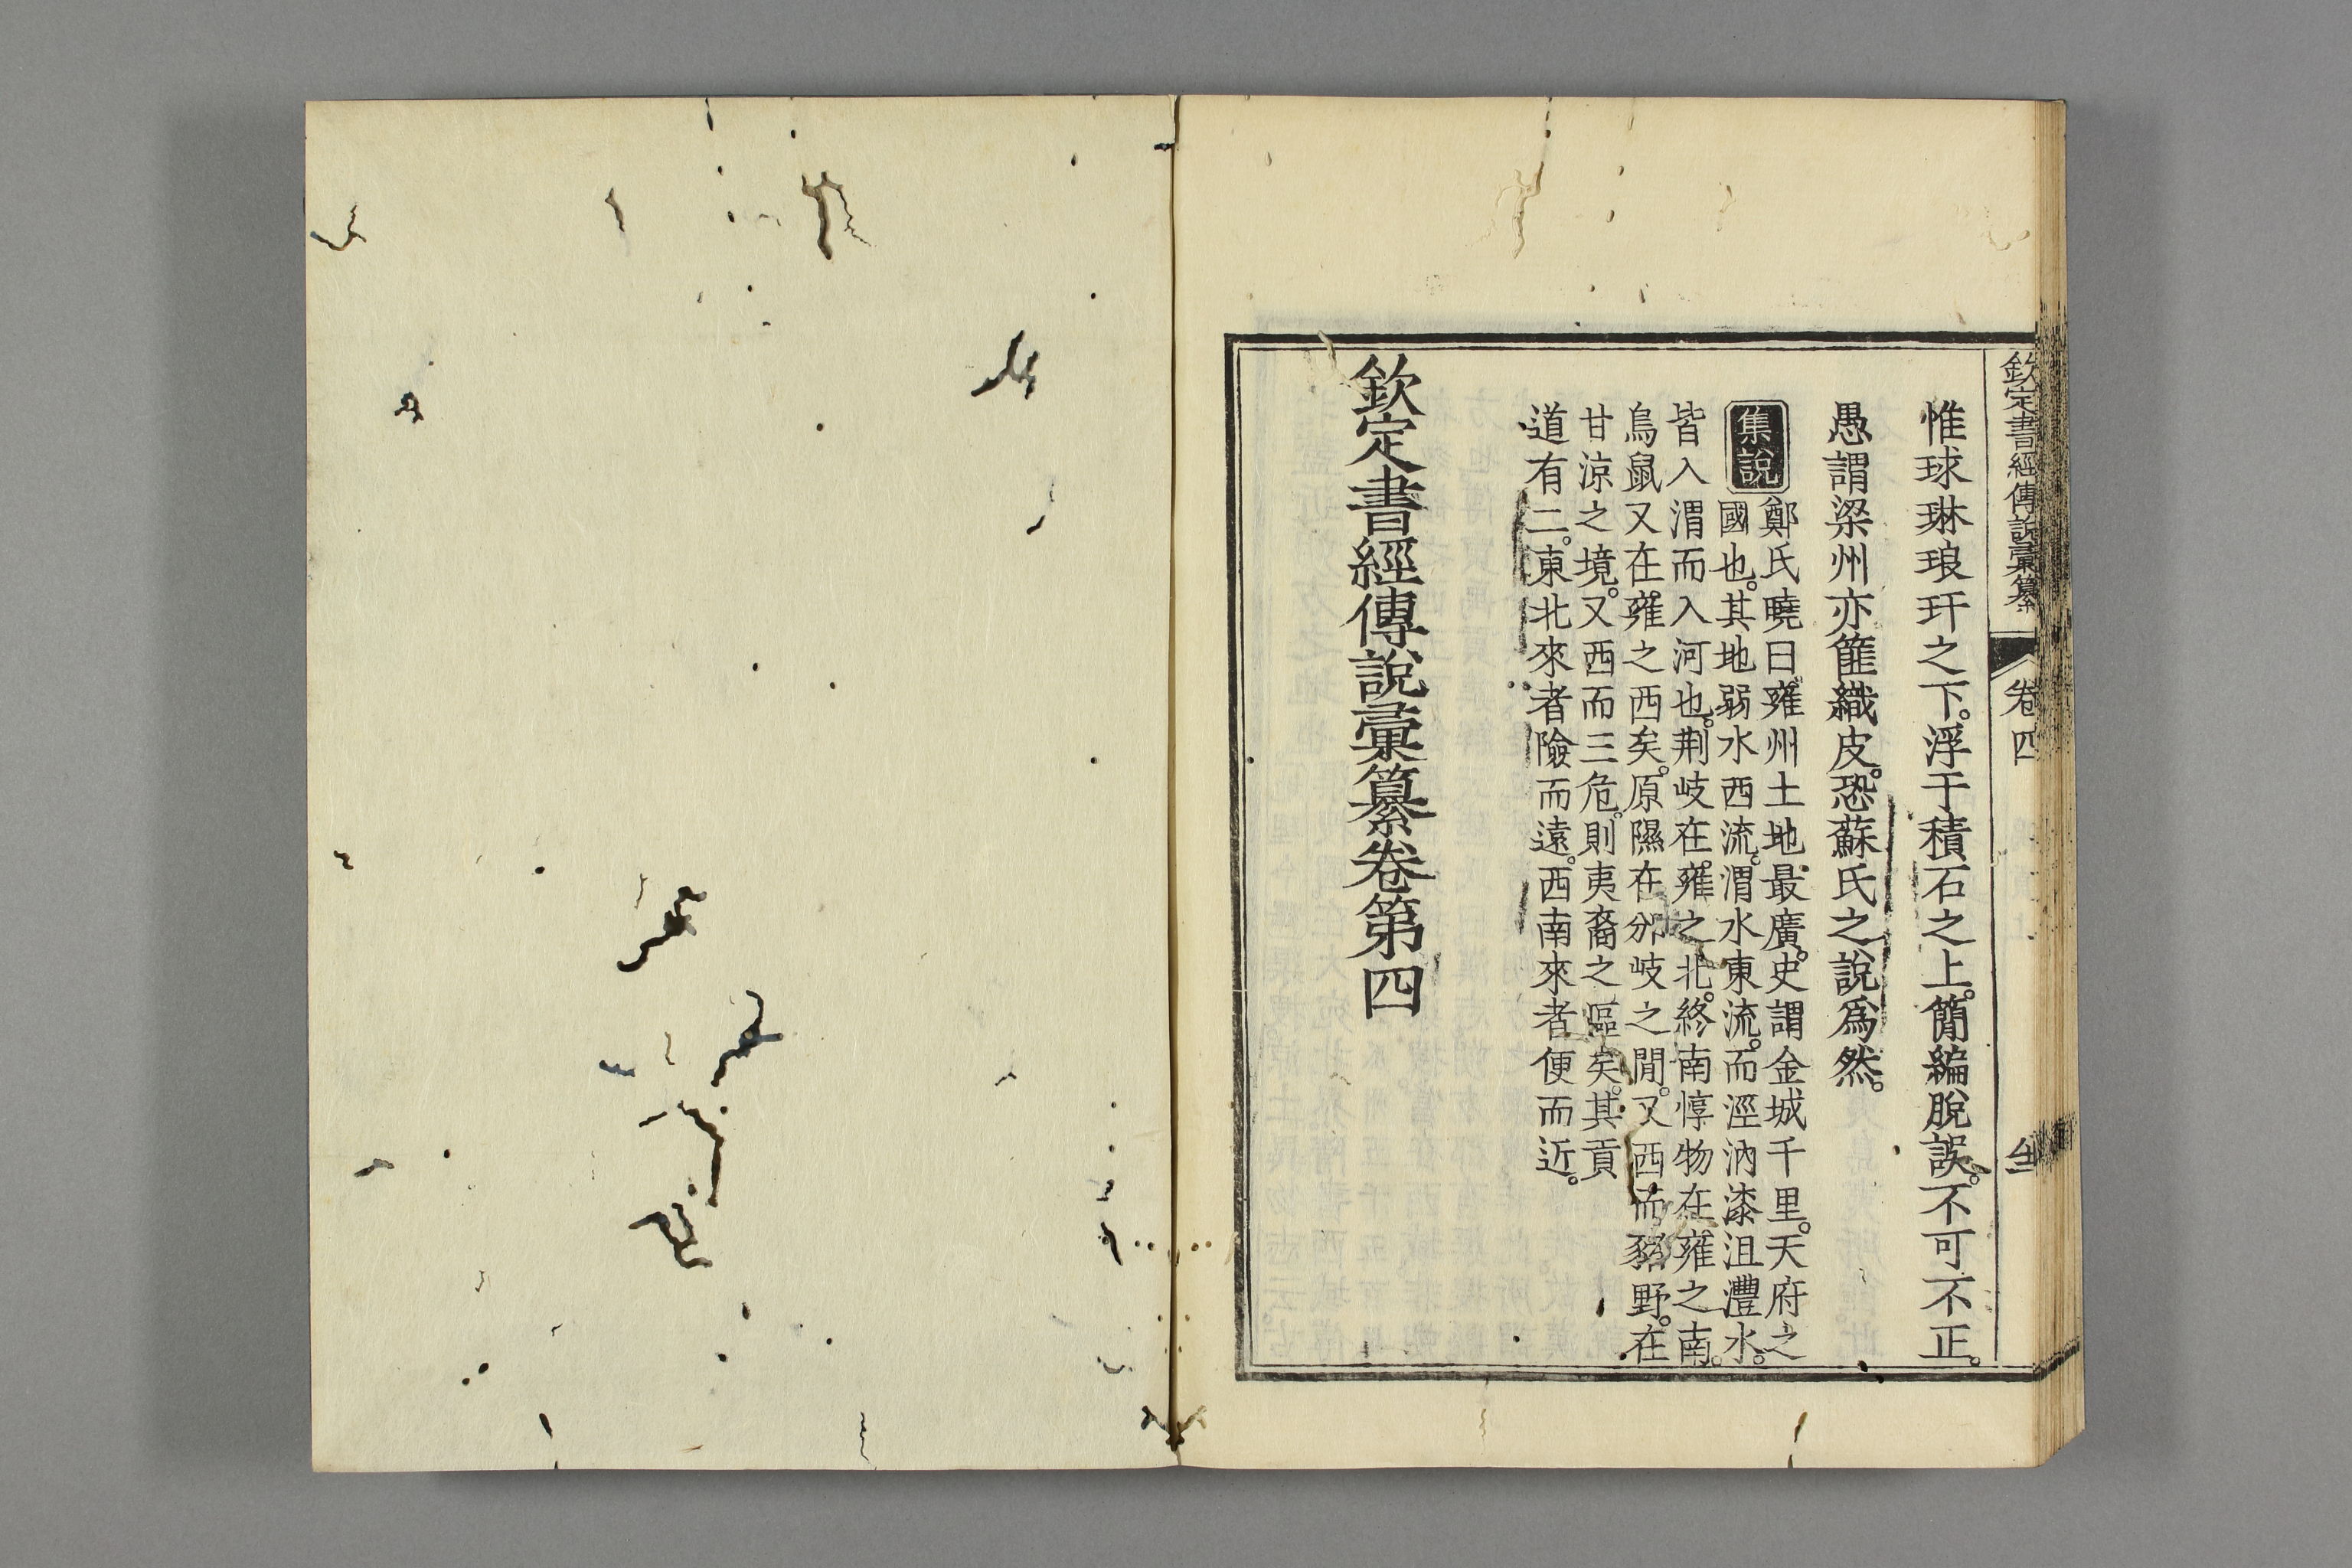 欽定書經傳說彙纂 卷四
惟球琳琅玕之下。浮于積石之上。簡編脫誤。不可不正。
愚謂梁州亦篚織皮。恐蘇氏之說爲然。
集說
鄭氏曉曰。雍州土地最廣。史謂金城千里。天府之
國也。其地弱水西流。渭水東流。而涇汭漆沮灃水。
皆入渭而入河也。荆岐在雍之北。終南惇物在雍之南。
鳥鼠又在雍之西矣。原隰在邠岐之閒。又西而豬野。在
甘涼之境。又西而三危。則夷裔之區矣。其貢
道有二。東北來者險而遠。西南來者便而近。
欽定書經傳說彙纂卷第四